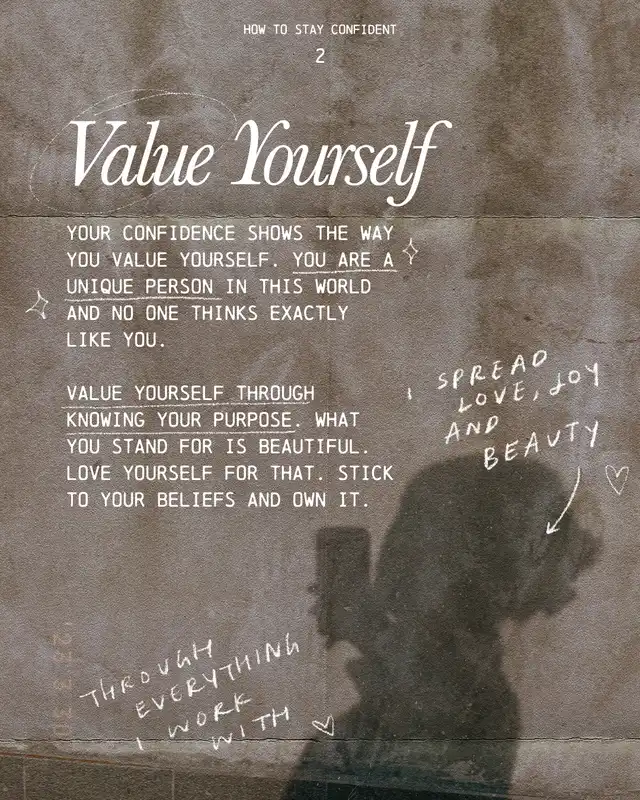 HOW TO STAY CONFIDENT
2
Value Yourself
YOUR CONFIDENCE SHOWS THE WAY
YOU VALUE YOURSELF. YOU ARE A
UNIQUE PERSON IN THIS WORLD
AND NO ONE THINKS EXACTLY
LIKE YOU.
VALUE YOURSELF THROUGH
KNOWING YOUR PURPOSE. WHAT
YOU STAND FOR IS BEAUTIFUL.
LOVE YOURSELF FOR THAT. STICK
TO YOUR BELIEFS AND OWN IT.
I SPREAD
LOVE, JOY
AND
BEAUTY
THROUGH
EVERYTHING
I WORK
WITH